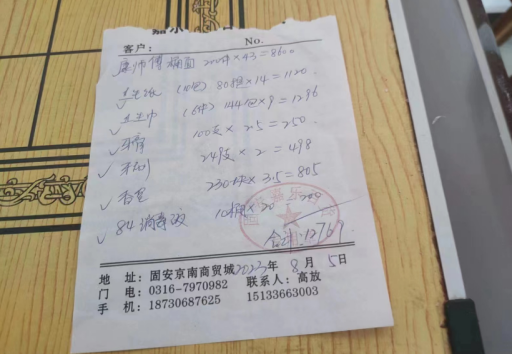 客户: No.
康师傅桶面 200件×43=8600
卫生纸 (10包) 80提×14=1120
卫生巾 (6件) 144包×9=1296
牙膏 100支×2.5=250
牙刷 249支×2=498
香皂 230块×3.5=805
84消毒液 10桶×20
合计:12769
地 址:固安京南商贸城 2023年8月5日
门 电:0316-7970982 联系人:高放
手 机:18730687625 15133663003